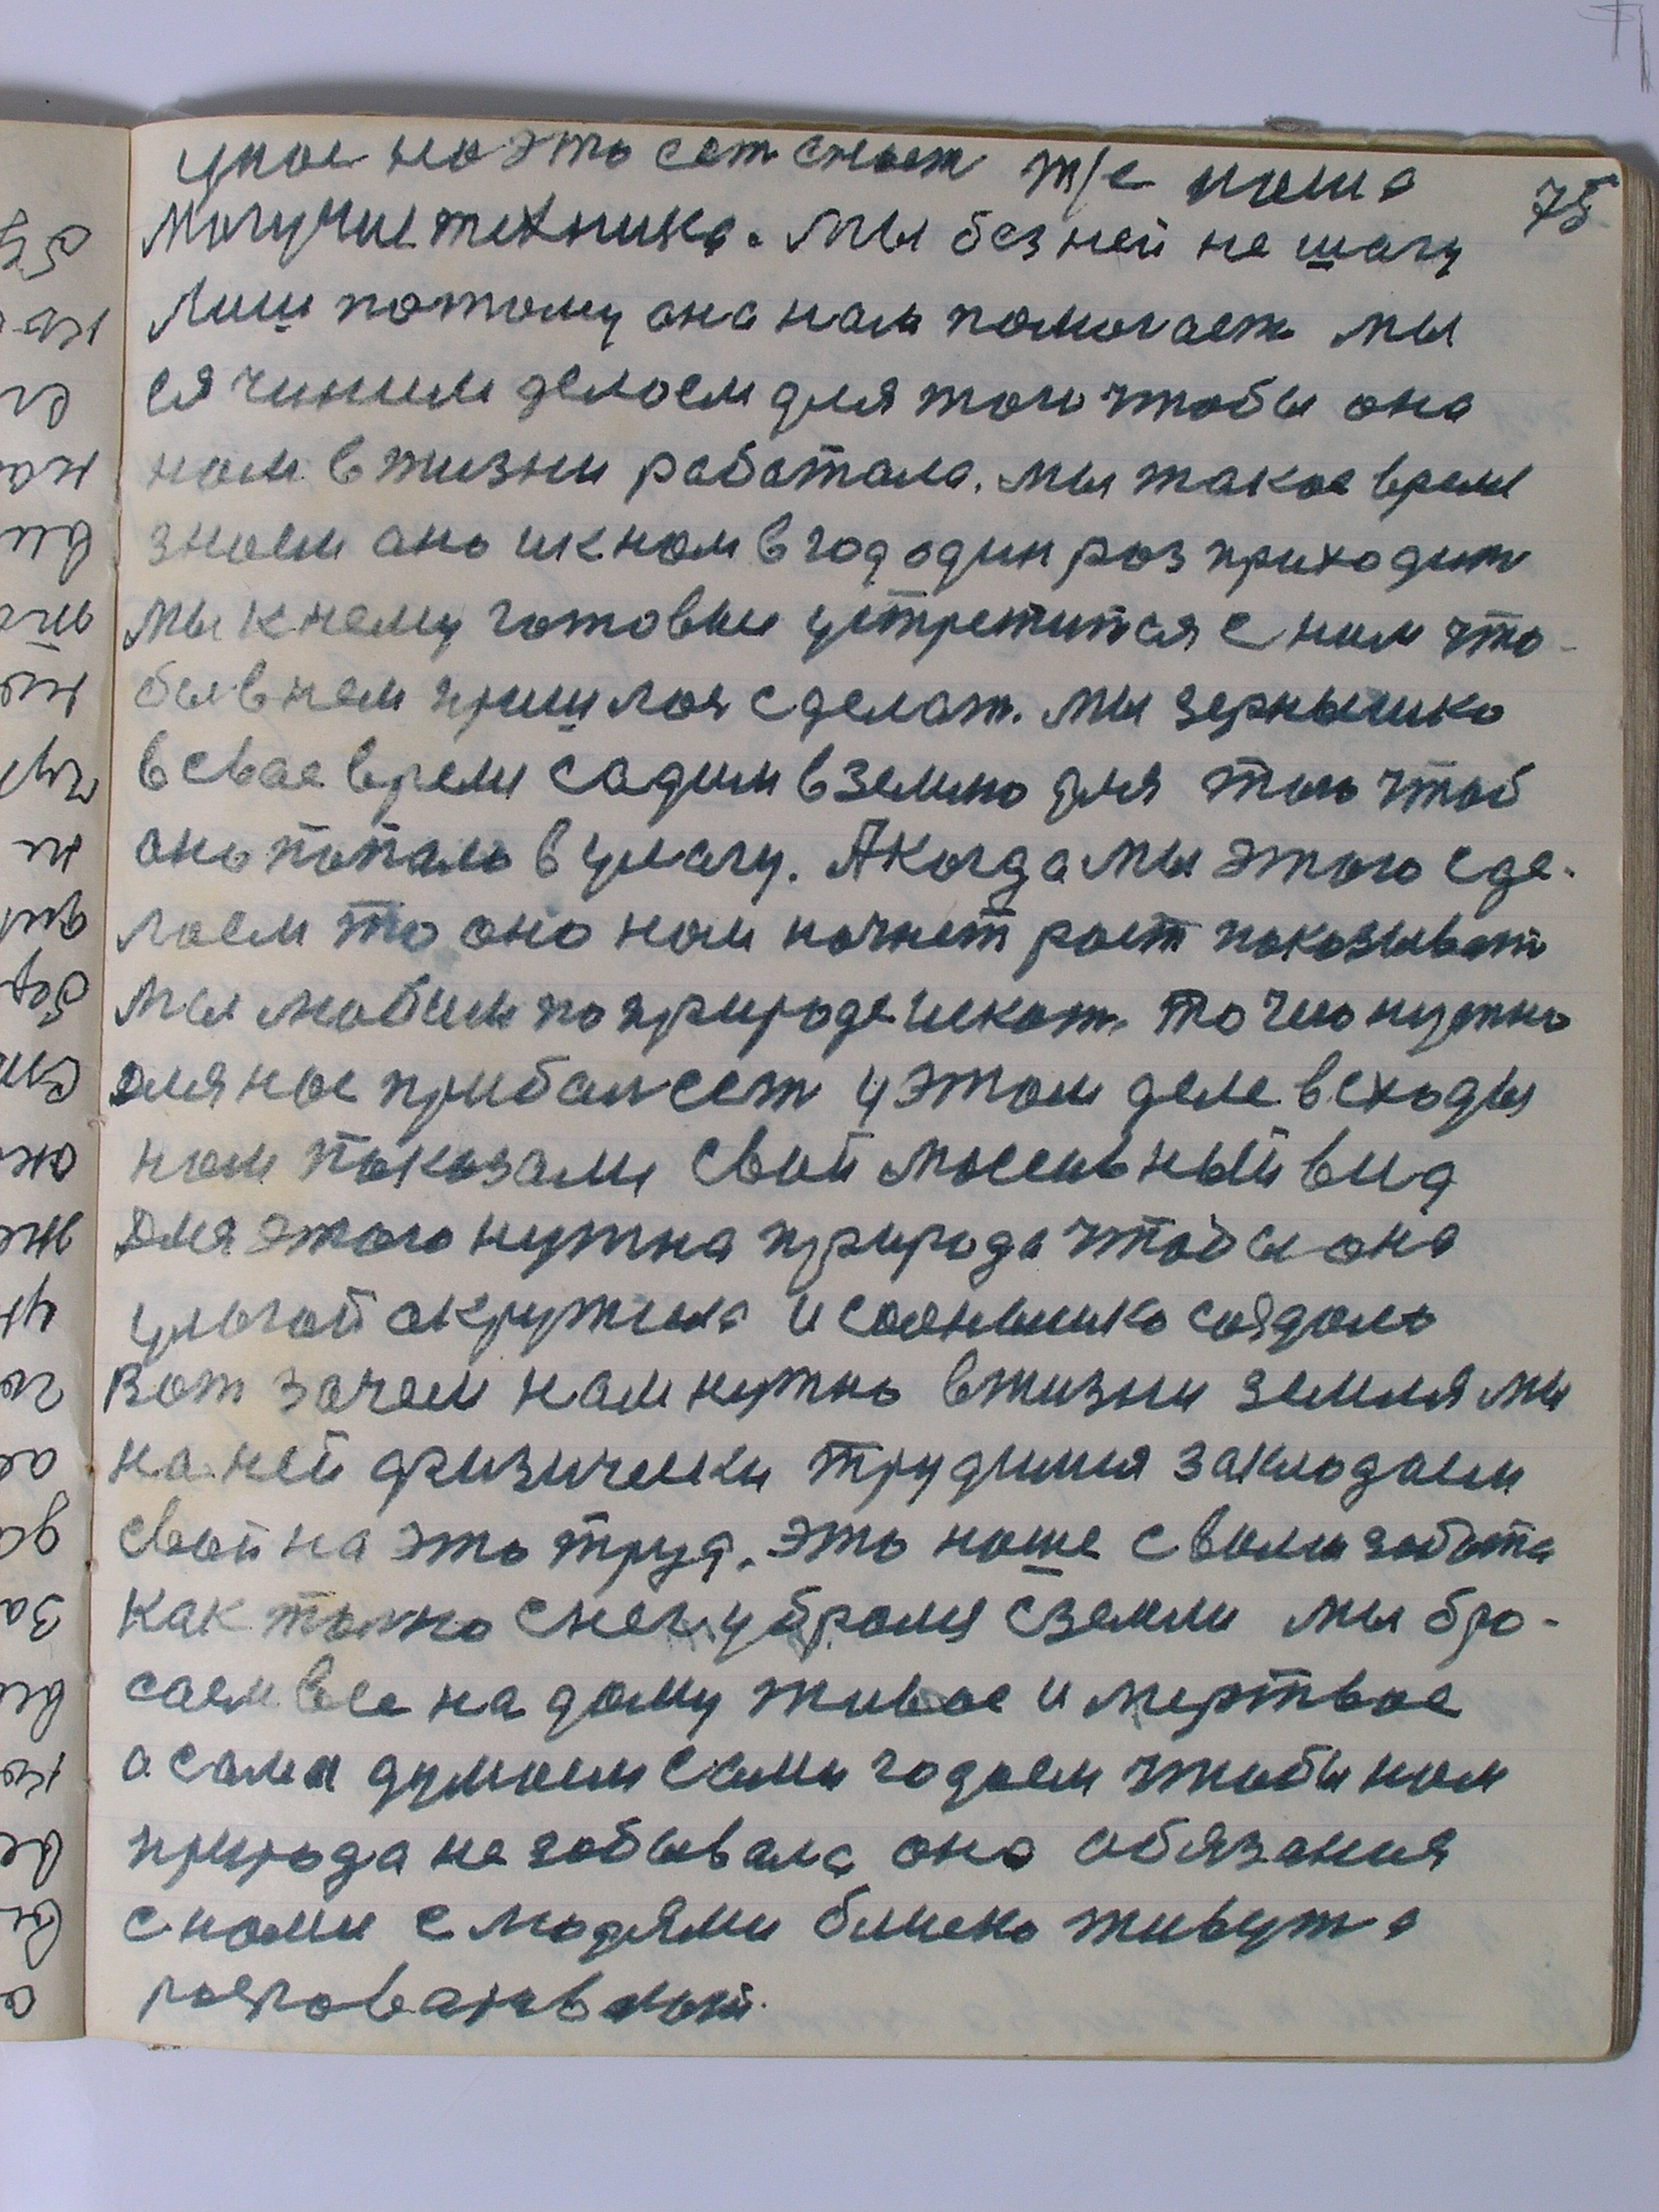 75
у нас на это ест снаст т/е наша
могучие техника. Мы без ней не шагу
лиш потому она нам помогает мы
ея чиним делаем для того чтобы она
нам в жизни работала. мы такое время
знаем ано и к нам в год один раз приходит
мы к нему готовы устретится с ним что-
бы в нем пришлося сделат. мы зернышко
в свае время садим в землю для того чтоб
оно попало в улагу. А когда мы этого сде-
лаем то оно нам начнет рост показыват
мы любим по природе искат. то чего нужно
для нас прибавляет у этом деле всходы
нам показали свой массивный вид
Для этого нужна природа чтобы она
улагой окружила и солнышко создало
Вот зачем нам нужно в жизни земля мы
на ней физически трудимся закладаем
свой на это труд. это наше с вами забота
Как толко снег убрался с земли мы бро-
саем все на дому живое и мертвое
а сами думаем сами гадаем чтобы нам
природа не забывала она обязания
с нами с людями близко живут а